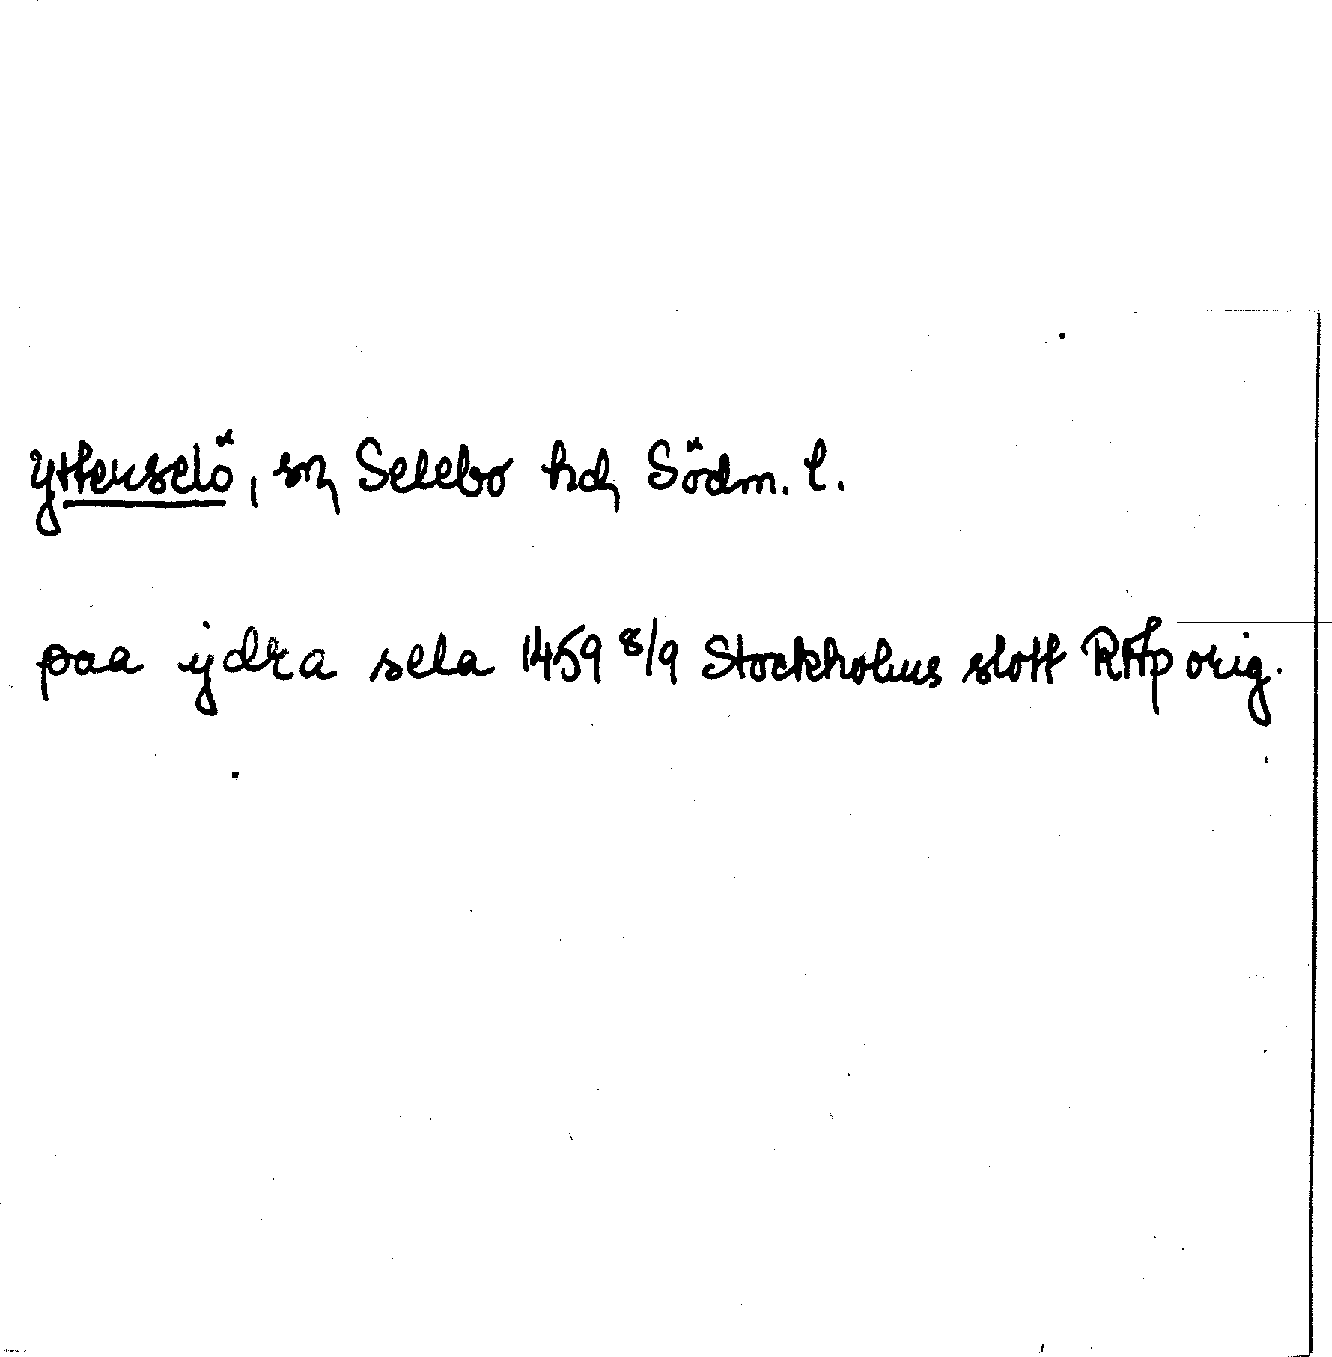 Ytterselö, sn, Selebo hd, Södm. l.
paa ydra sela 1459 8/9 Stockholms slott RAp orig.